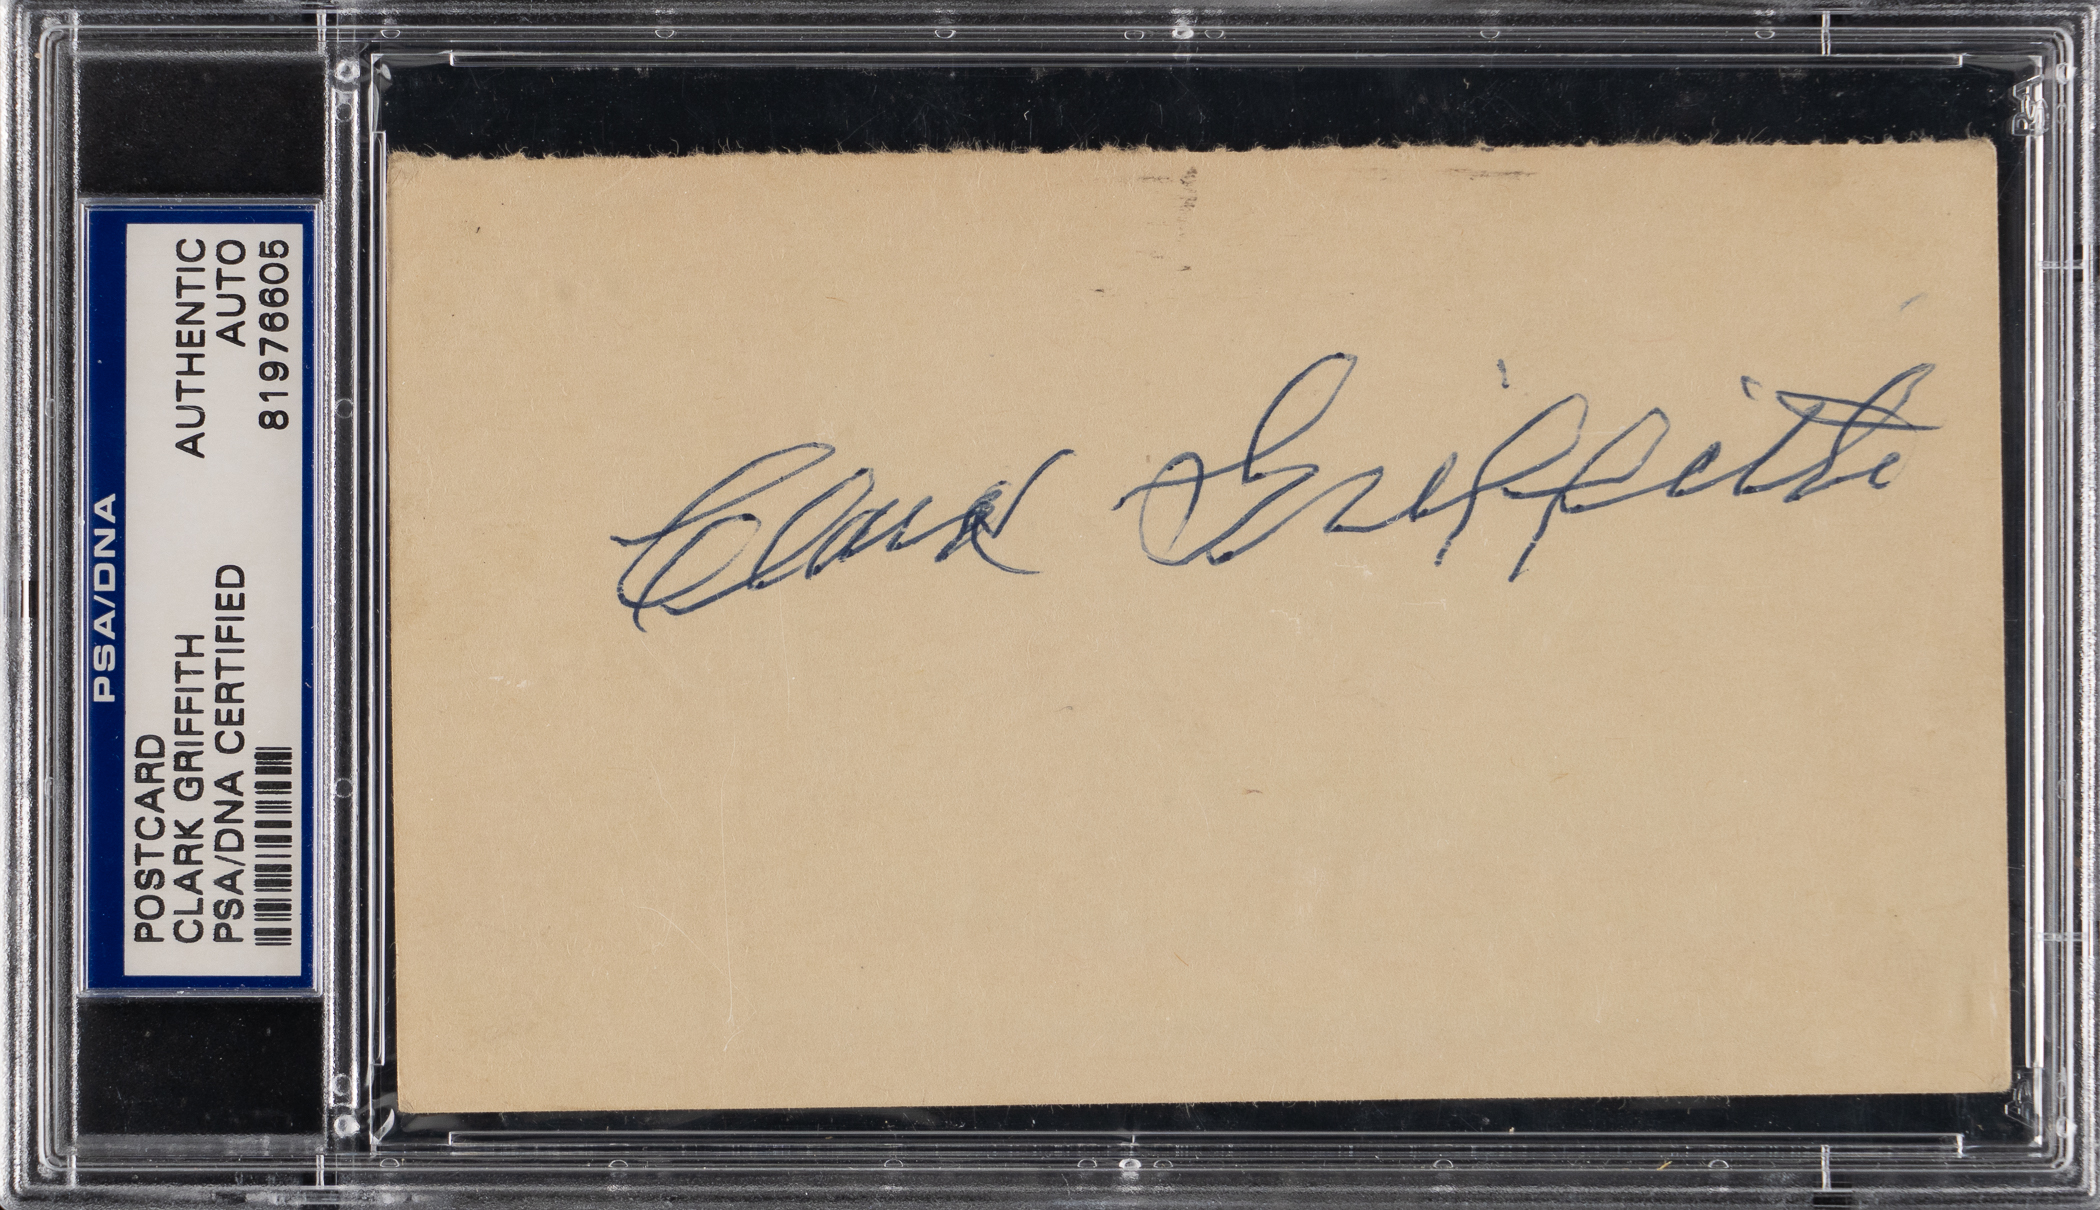 PSA/DNA
POSTCARD AUTHENTIC
CLARK GRIFFITH AUTO
PSA/DNA CERTIFIED 81976605
Clark Griffith
PSA